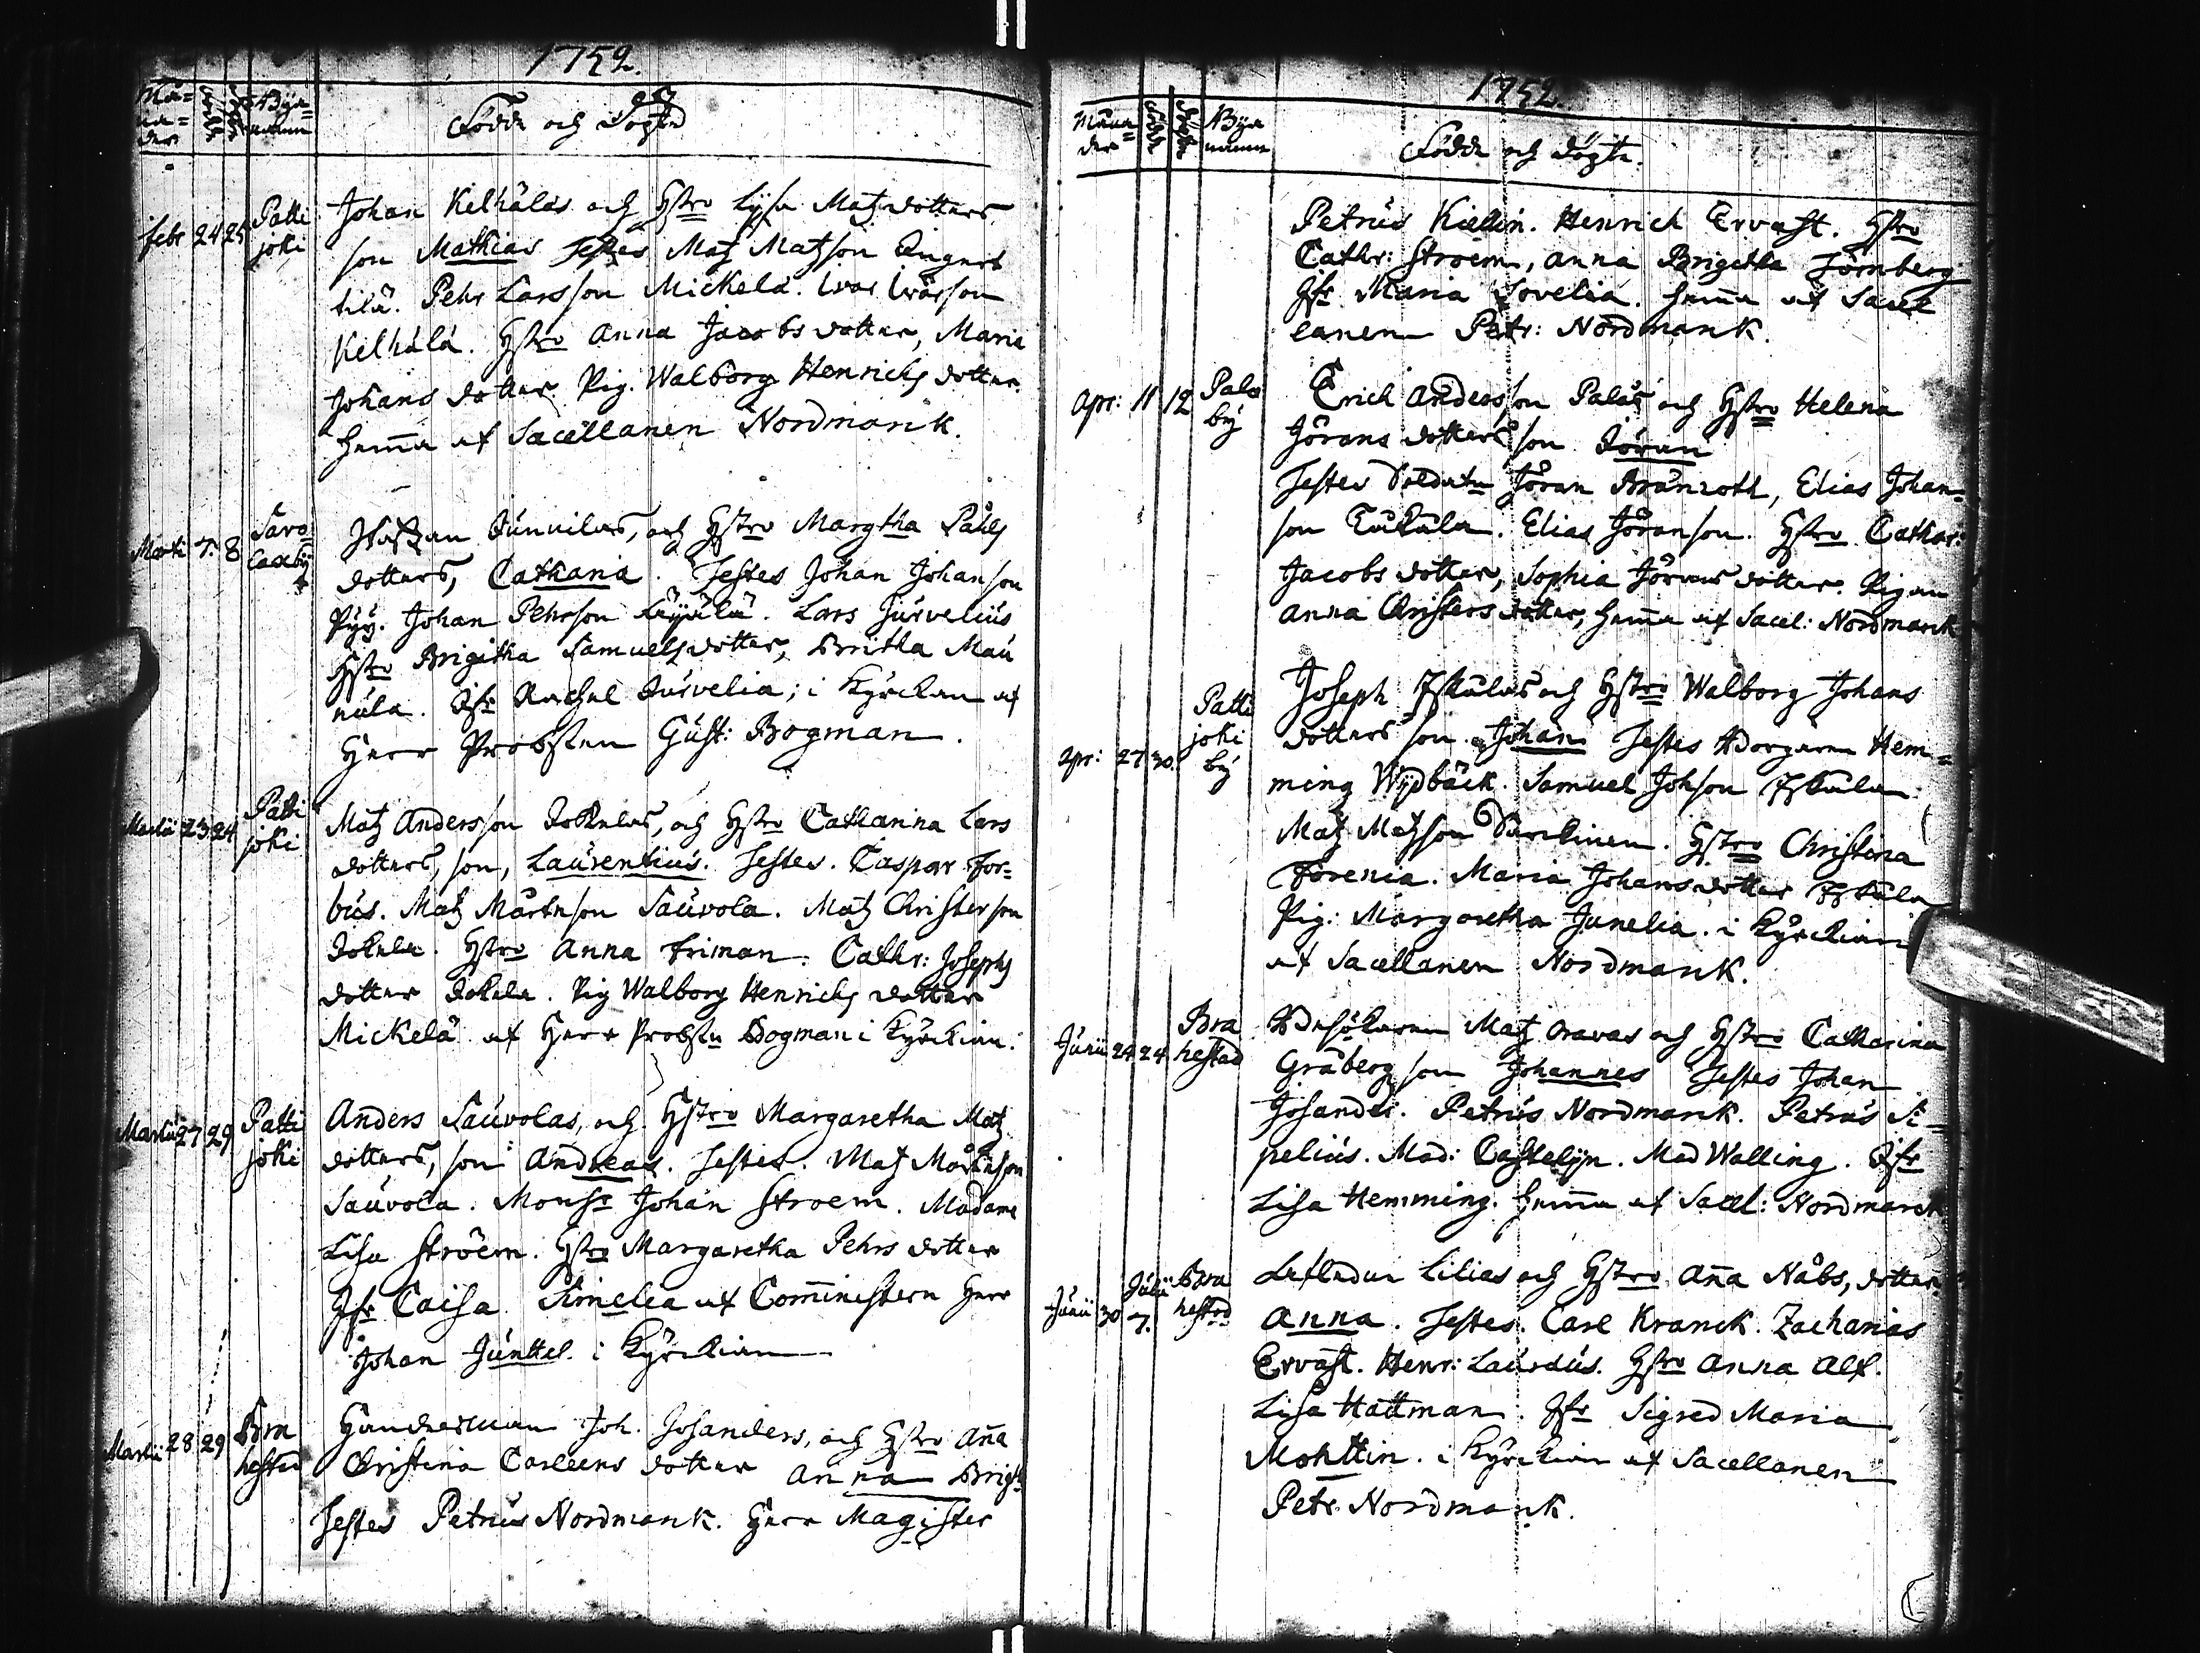 1752.
Måna=
der
Bya=
namn
Födde och Döpte
Febr 24 25 Patti
joki
Johan Kelhälas och Hstro Lysa Matz dotters
son Mathias Testes Matz Matzson
tilä. Pehr Larsson Mickelä. Ivar Ivarson
Kelhälä. Hstro Anna Jacobs dotter, Maria
Johans dotter. Pig. Walborg Henrichs dotter
hema af Sacellanen Nordmank.
Marti 7. 8 Savo=
laxby
och Hstro Margtha Påls
dotters, Catharia. Testes Johan Johanson
Pyy. Johan Pehrson. Lars Jurvelius
Hstro Brigitha Samuels dotter, Britha Mau
nula. Jfr Rachel Jurvelia; i Kyrckan af
Herr Probsten Gust: Bogman.
Martii 23 24 Patti
joki
Matz Andersson Jokelas, och Hstro Catharina Lars
dotters, son, Laurentius. Testes. Caspar For=
bus. Matz Mårtnson Sauvola. Matz Christerson
Jokela. Hstro Anna Friman. Cathr: Josephs
dotter Jokela. Pig Walborg Henrichs dotter
Mickelä af Herr Probstn Bogman i Kyrckian.
Martii 27 29 Patti
joki
Anders Sauvolas, och Hstro Margaretha Matz
dotters, son Andreas. Testes. Matz Mårtnson
Sauvola. Monsr Johan Stroem. Madame
Lisa Ström. Hstro Margaretha Pehrs dotter
Jfr Caisa Simelia af Cominstern Herr
Johan Junttel. i Kyrckian
Martii 28 29 Bra
hestad
Handelsman Joh. Josanders, och Hstro Aña
Christina Carleens dotter Anna Brigt
Testes Petrus Nordmank. Herr Magister
1752.
Måna=
der
Bya
namn
Födde och döpte.
Petrus Kiellin. Henrich Ervast. Hstro
Cathr: Stroem, Anna Brigitha Törnberg
Jfr Maria Sovelia. hema af Sacel
lanen Petr: Nordmank.
Apr: 11 12 Palo
by
Erich Andersson Palås och Hstro Helena
Jörans dotters son Jöran
Testes Soldatn Jöran Brunroth, Elias Johan=
son. Elias Jöranson. Hstro Cathar:
Jacobs dotter, Sophia Jörans dotter. Pigan
Anna Christers dotter, hema af Sacel: Nordmank
Apr: 27 30. Patti
joki
by
Joseph och Hstro Walborg Johans
dotters son Johan Testes Borgaren Hem=
ming Wydbäck. Samuel Johson
Matz Matzson. Hstro Christina
Forenia. Maria Johans dotter
Pig: Margaretha Junelia. i Kyrckian
af Sacellanen Nordmank.
Junii 24 24 Bra
hestad
Besökaren Matz Oravas och Hstro Catharina
Gråberg son Johannes Testes Johan
Josander. Petrus Nordmank. Petrus Si=
pelius. Mad: Castelyn. Mad Walling. Jfr
Lisa Hemming. hema af Sacel: Nordmank
Junii 30 Julii 7. Bra
hestad
Lilias och Hstro Aña Nåbs, dotter
Anna. Testes. Carl Kranck. Zacharias
Ervast. Henr: Laurdus. Hstro Anna Alf.
Lisa Hattman. Jfr Sigred Maria
Mohttin. i Kyrckian af Sacellanen
Petr. Nordmank.